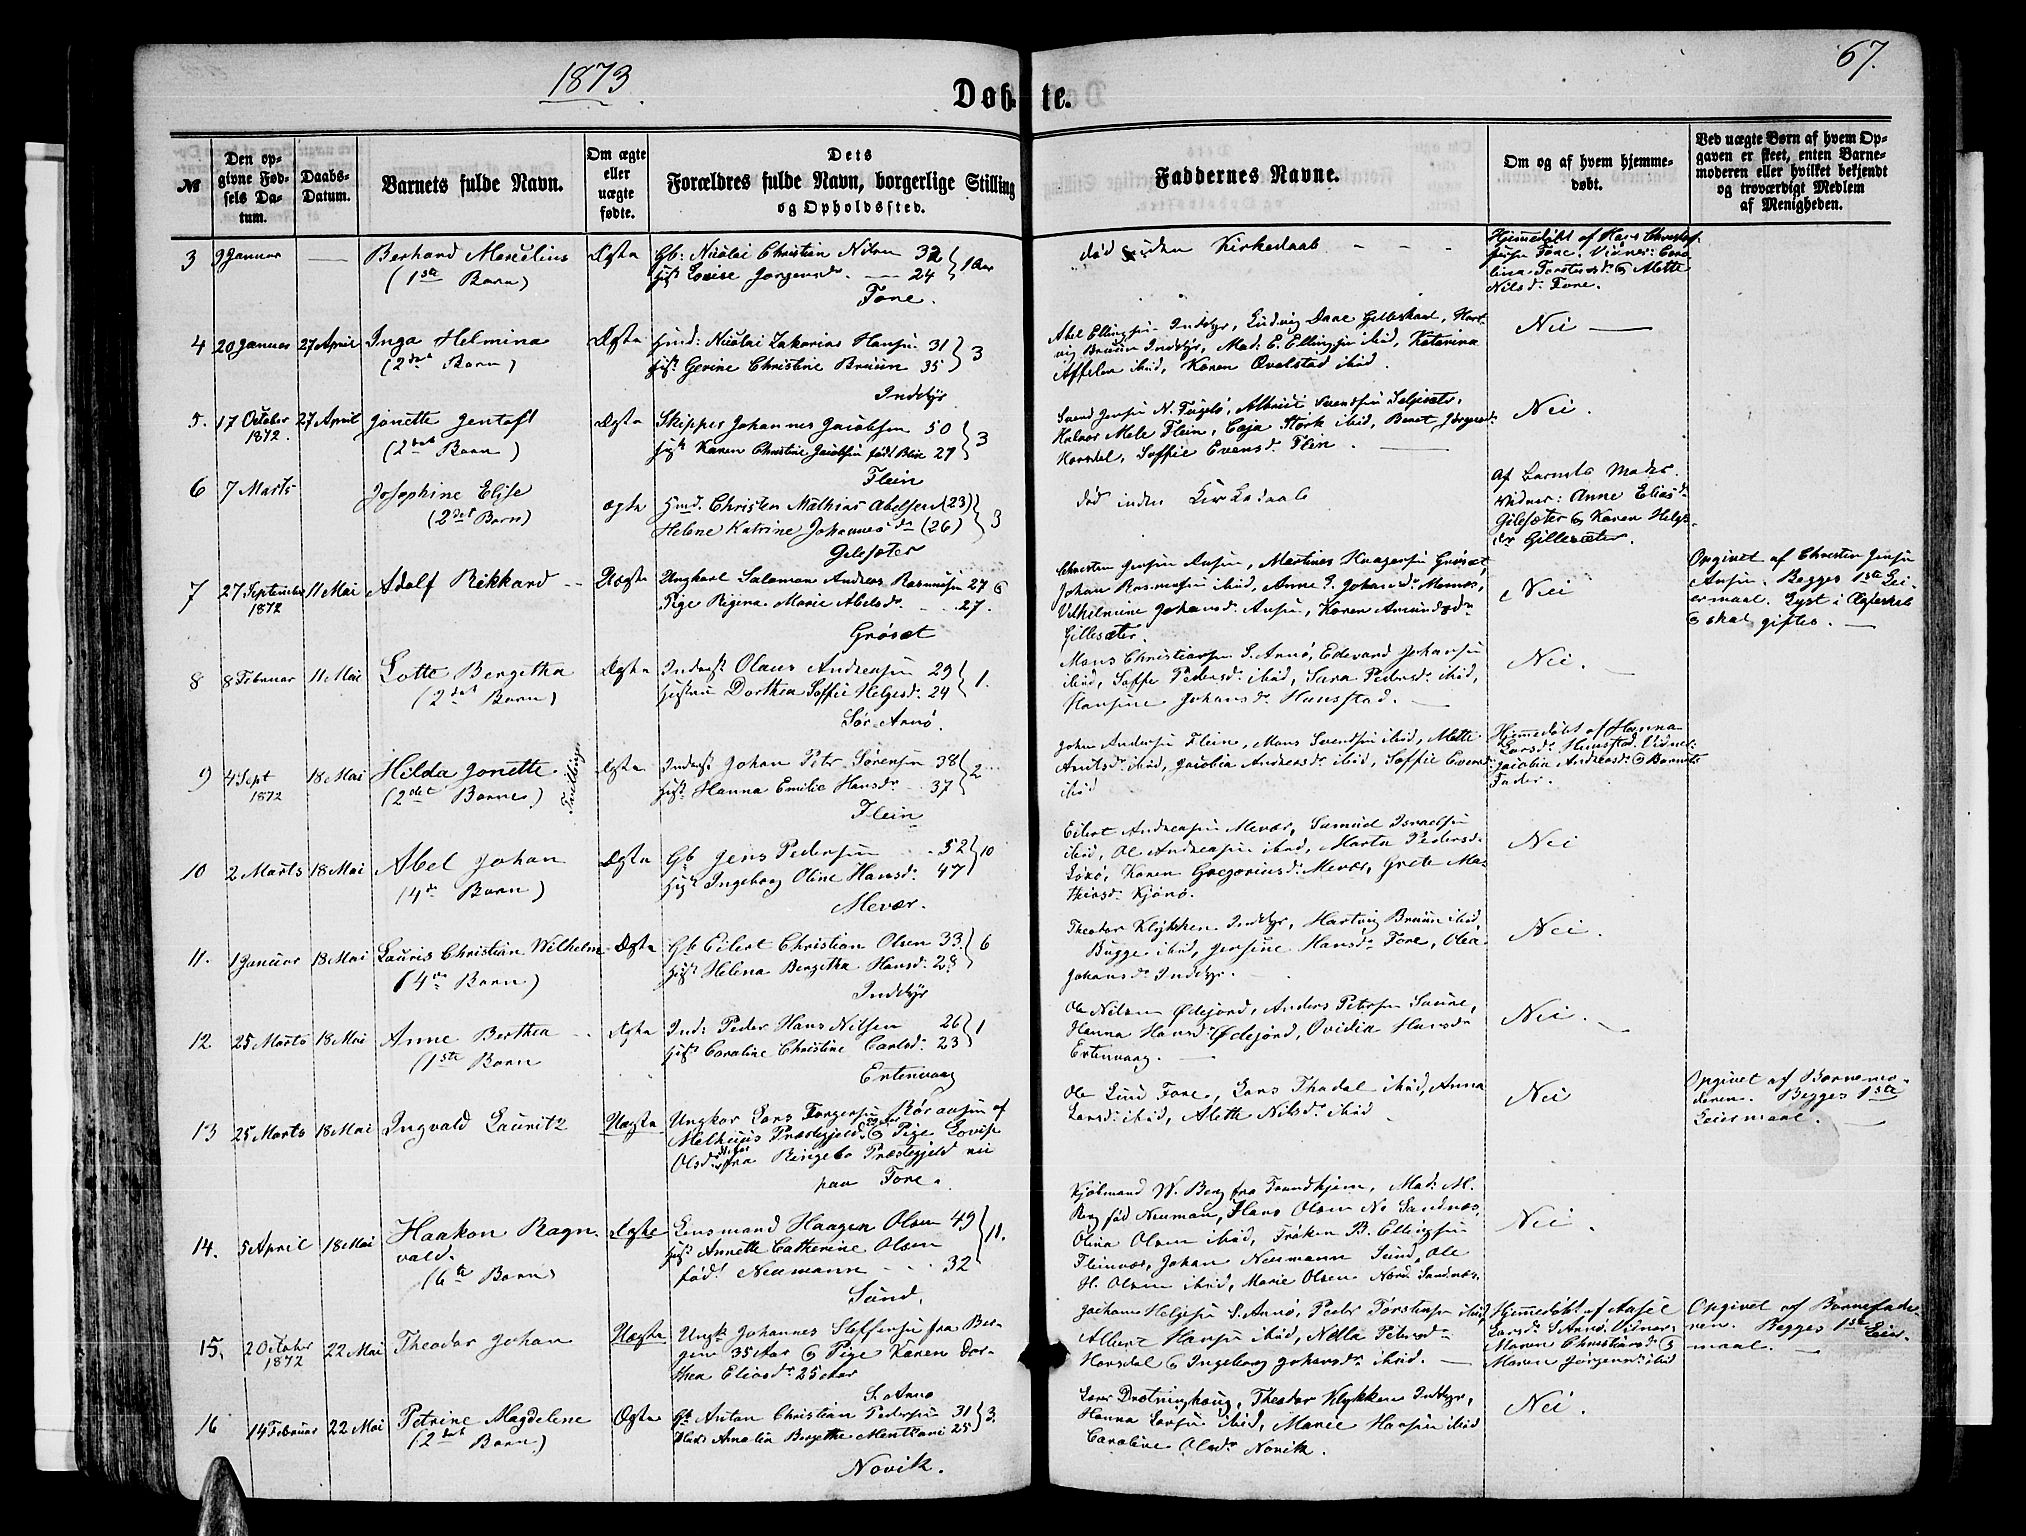 1873
67.
Døbte.
№
Den opgivne Fødsels Datum.
Daabs-Datum.
Barnets fulde Navn.
Om ægte eller uægte fødte.
Dets Forældres fulde Navn, borgerlige Stilling og Opholdssted.
Faddernes Navne.
Om og af hvem hjemmedøbt.
Ved uægte Børn af hvem Opgaven er skeet, enten Barnemoderen eller hvilket bekjendt og troværdigt Medlem af Menigheden.
3 9 Januar — Berhard Marcelius Ægte Gb: Nicolai Christian Nilsen 32
(1ste Barn) Louise Jørgensdr. — 24
Fore.
død uden Kirkedaab
Hjemmedøbt af Hans Christof-
Fore. Vidner: Caro-
lina Torstensd: & Mette
Nilsd: Fore.
4 20 Januar 27 April Inga Helmina Ægte Nicolai Zakarias Hansen 31 } 3
(2det Barn) Gerine Christine Bruun 35
Inddyr
Abel Ellingsen Inddyr, Ludvig Daae Gilleskaal, Hart-
vig Bruun Inddyr, Mad: E. Ellingsen ibid, Katarina
ibid, Karen Qvalstad ibid.
Nei
5. 17 October 1872. 27 April Jonette Jentoft Ægte Skipper Johannes Jacobsen 50 } 3
(2det Barn) Karen Christine Jacobsen født 27
Flein
Svend Jensen N. Fugelø,
Halvor Mele Flein, Caja Stork ibid, Beret
Horsdal, Soffie Evensd. Flein
Nei.
6 7 Marts Josephine Elise ægte Christen Mathias Abelsen (23) } 3
(2det Barn) Helene Katrine Johannesdr (26)
Gilesæter
død uden Kirkedaab
Af Barnets Moder.
Vidner: Anne Eliasd:
Gilesæter & Karen Helgs-
dr Gillesæter.
7 27 September 1872 11 Mai Adolf Rikkard Uægte Ungkarl Salamon Andreas Rasmusen 27 6
Pige Regina Marie Abelsdr. 27.
Grøsæt
Christen Jensen Martines Haagensen Grøsæt,
Johan Rasmusen ibid, Anne J. Johansdr
Vilhelmine Johansdr Karen Amundsdr
Gillesæter.
Nei
Opgivet af Christen Jensen
Begges 1ste Lei-
ermaal. Lyst i Ægteskab
& skal giftes.
8 8 Februar 11 Mai Lotte Bergetha Ægte Olaus Andreasen 29 } 1.
(2det Barn) Dorthea Soffie Helgesd. 24
Sør-Arnø.
Mons Christiansen S. Arnø, Edevard Johansen
ibid, Soffe Pedersdr ibid, Sara Pedersdr ibid,
Hansine Johansdr Hunstad.
Nei.
9 4 Sept 1872 18 Mai Hilda Jonette Ægte Inderst Johan Petr Sørensen 38 } 2
(2det Barn) Tvillinge Hanna Emilie Hansdr 37
Flein
John Andersen Flein, Mons Svendsen ibid, Mette
ibid, Jacobia Andreasdr ibid, Soffie Evensd
ibid
Hjemmedøbt af Hanna
Larsdr Hunstad. Vidner:
Jacobia Andreasdr & Barnets
Fader.
10 2 Marts 18 Mai Abel Johan Ægte Gb Jens Pedersen 52 } 10
(4de Barn) Ingeborg Oline Hansdr. 47
Mevær.
Eilert Andreasen Mevær, Samuel Israelsen
ibid, Ole Andreasen ibid, Marta Pedersd.
Karen Gregoriusdr Mevær, Grete Ma-
thiasdr
Nei
11. 1 Januar 18 Mai Lauris Christian Wilhelm Ægte Gb Eilert Christian Olsen 33 } 6
(4de Barn) Helena Bergetha Hansd. 28
Inddyr
Theodor Klykken Inddyr, Hartvig Bruun ibid,
Bugge ibid, Jensine Hansdr Fore, Olea
Johansdr Inddyr.
Nei.
12. 25 Marts 18 Mai Anne Berthea Ægte Ind: Peder Hans Nilsen 26 } 1
(1ste Barn Caroline Christine Carlsd: 23
Ertenvaag
Ole Nilsen Ødejord, Anders Petersen
Hanna Hansdr Ødejord, Ovidia Hansdr
Ertenvaag.
Nei.
13 25 Marts 18 Mai Ingvald Lauritz Uægte Ungkar Lars
Melhuus Præstegjeld & Pige Lovise
Olsdr fra Ringebo Præstegjeld nu
paa Fore.
Ole Lund Fore, Lars ibid, Anna
Larsdr ibid, Alette Nilsdr ibid
Nei
Opgivet af Barnemo-
deren. Begges 1ste
Leiermaal.
14. 5 April 18 Mai Haakon Ragn- Ægte Lensmand Haagen Olsen 49 } 11.
vald. Annette Catherine Olsen
(6te Barn) fød: Neumann 32
Sund.
Kjøbmand W. Berg fra Trondhjem, Mad: M.
Berg fød Neuman, Hans Olsen No Sandnæs,
Olina Olsen ibid, Frøken B. Ellingsen
Fleinvær, Johan Neumann Sund, Ole
H. Olsen ibid, Marie Olsen Nord Sandnæs.
Nei.
15. 2 October 1872 22 Mai Theodor Johan Uægte Ungk Johannes Steffensen fra Ber-
gen 35 Aar & Pige Karen Dor-
thea Eliasdr 25 Aar
S. Arnø
Jochum Helgesen S. Arnø, Peder Torstensen ibid,
Albert Hansen ibid, Nella Petersdr
Horsdal & Ingeborg Johansdr ibid.
Hjemmedøbt af
Larsdr S. Arnø. Vidner:
Maren Christiansdr &
Maren Jørgensdr ibid
Opgivet af Barnefade-
ren. Begges 1ste Leier-
maal.
16 14 Februar 22 Mai Petrine Magdelene Ægte Gb Anton Christian Pedersen 31 } 3.
(2det Barn) Amalia Bergethe 25
Novik.
Theodor Klykken Inddyr,
Hanna Larsen ibid, Marie Hansen ibid
Caroline Olsdr Novik.
Nei.